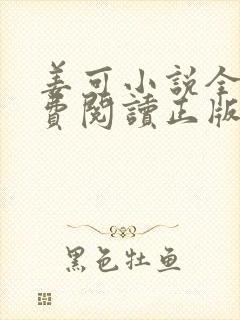 姜可小說全
費閱讀正版
黑色牡鱼